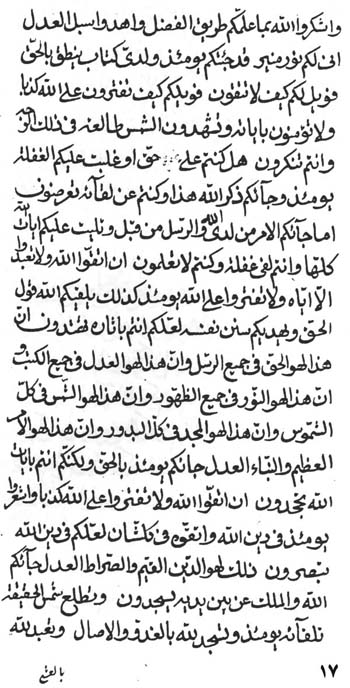 واشكروا الله بما علمكم طريق الفضل واهدوا سبل العدل
انى لكم نور منير قد جئتكم يومئذ ولدى كتاب ينطق بالحق
فويل لكم كيف لا تتقون فويلكم كيف تفترون على الله كذبا
ولا تؤمنون باياته وتشهدون الشمس طالعة فى ذلك
وانتم تنكرون هل كنتم على حق او غلبت عليكم الغفلة
يومئذ وجائكم ذكر الله هذا وكنتم عن لقائه تعرضون
اما جائكم الامر من لدى الله والرسل من قبل وتليت عليكم ايات الله
كلها وانتم لفى غفلة وكنتم لا تعلمون ان اتقوا الله ولا تعبدوا
الا اياه ولا تفتروا على الله يومئذ كذلك يلقيكم الله قول
الحق ويهديكم سنن نفسه لعلكم انتم باثاره تهتدون ان
هذا لهو الحق فى جميع الرسل وان هذا لهو العدل فى جميع الكتب و
ان هذا لهو النور فى جميع الظهور وان هذا لهو الشمس فى كل
الشموس وان هذا لهو المجد فى كل البدور وان هذا لهو الامر
العظيم والنباء العدل جائكم يومئذ بالحق ولكنكم انتم بايات
الله تجحدون ان اتقوا الله ولا تفتروا على الله كذبا واشعروا
يومئذ فى دين الله واتقوه فى كلشان لعلكم فى دين الله
تبصرون ذلك لهو الدين القيم والصراط العدل جائكم
الله والملك عن بين يديه يسجدون وتطلع شمس الحقيقة
تلقائه يومئذ وتسجد لله بالغدو والاصال وتعبد لله
١٧